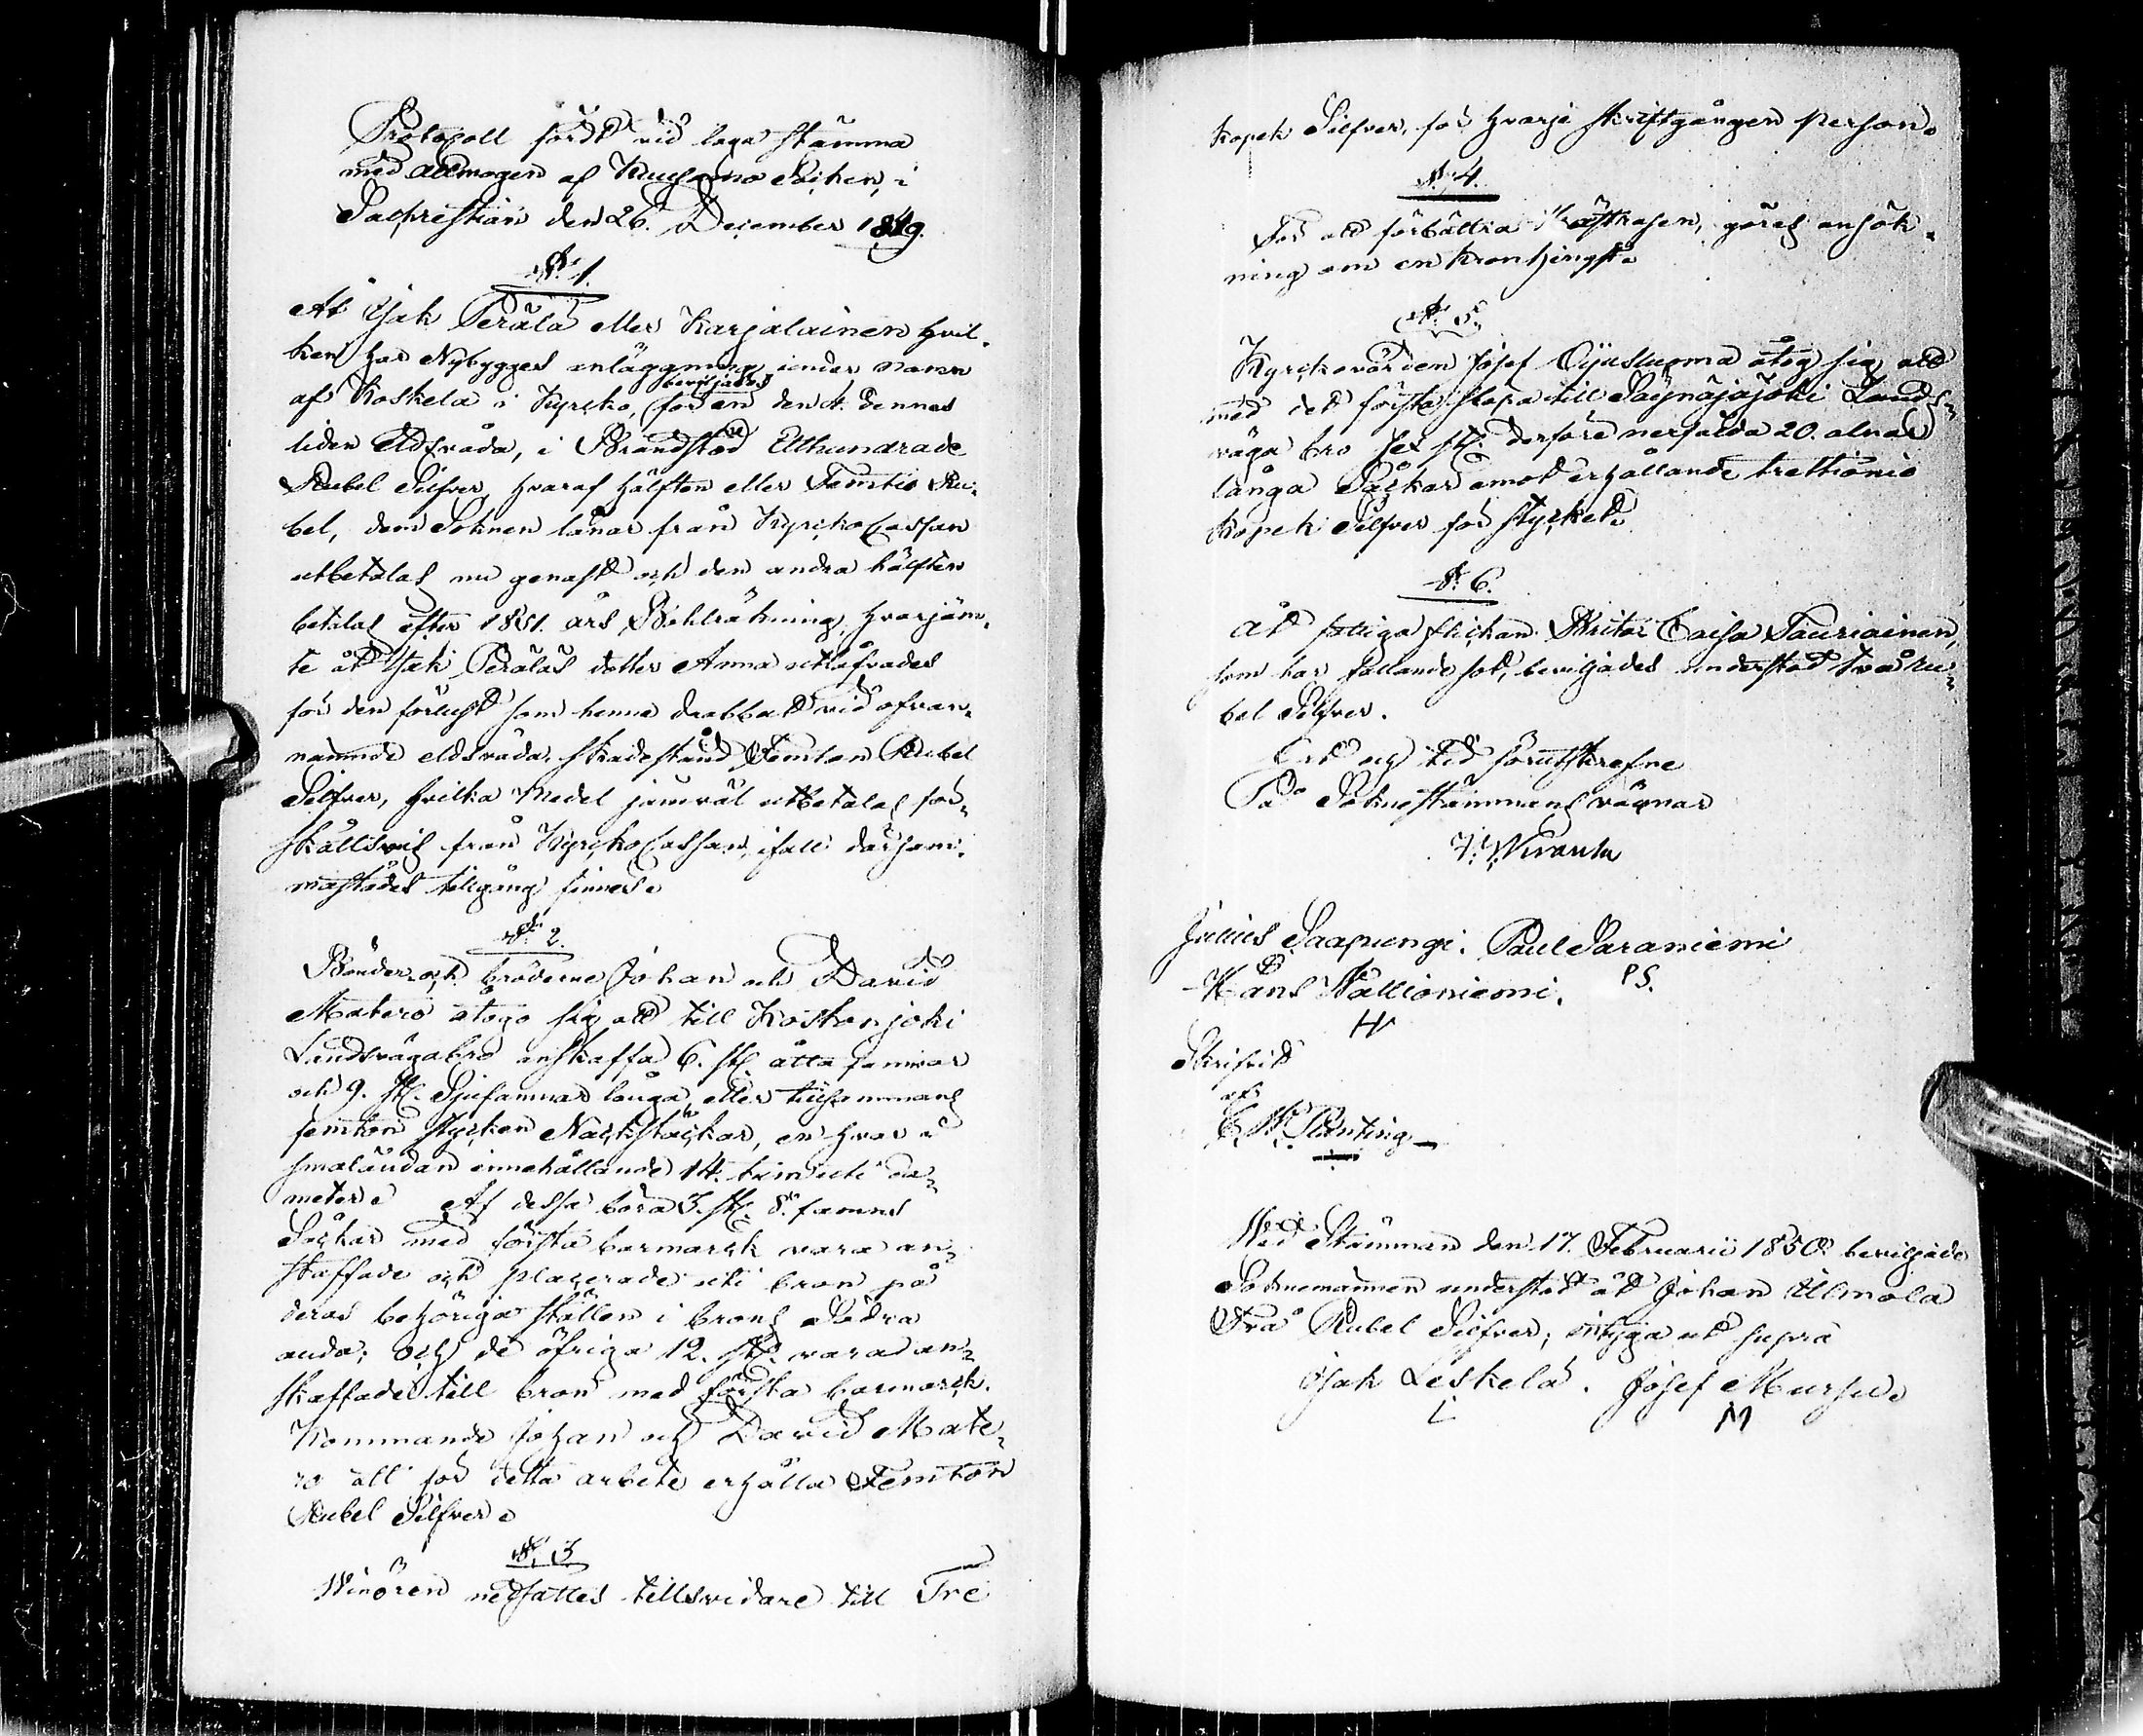 Protocoll fördt vid laga Stämma
med Allmogen af Kuusamo Socken, i
Sachristian den 26. December 1849.
N:o 1.
At Isak Perälä eller Karjalainen hvil-
ken har Nybygges anläggning under namn
af Koskela i Kyrcko, beviljades för en den 4. dennes
liden Eldsvåda, i Brandstod Etthundrade
Rubel Silfver, hvaraf hälften eller Femtio Ru-
bel, dem Soknen lånar från Kyrcko Cassan
utbetalas nu genast och den andra hälften
betalas efter 1851. års Bohlräkning, hvarjäm-
te åt Isak Peräläs dotter Anna utlofvades
för den förlust som henne drabbat vid ofvan-
nämnde eldsvåda, skadestånd Femton Rubel
Silfver, hvilka Medel jämväl utbetalas för-
skåttsvis från Kyrcko Cassan, ifall därsam-
mastädes tillgång finnes.
N:o 2.
Bönder och bröderne Johan och David
Matero åtogo sig att till Koskenjoki
Landsvägabro anskaffa 6. st. åtta famnar
och 9. st. Sjufamnar långa, eller tillsammans
femton stycken Näckstockar, en hvar i
smaländan innehållande 14. tum uti Dia-
meter. Af dessa böra 3. st. 8. famns
Stockar med första barmarck vara an-
skaffade och placerade uti bron på
deras behöriga ställen i brons Södra
anda; Och de öfriga 12. st. varad an-
skaffade till bron med första barmarck.
Kommande Johan och David Mate-
ro att för detta arbete erhålla Femton
Rubel Silfver.
N:o 3
Winören nedsattes tillsvidare till Tre
kopek Silfver, för hvarje skriftgången person.
N:o 4.
För att förbättra Hästrasen, göres ansök-
ning om en Kronhingst.
N:o 5.
Kyrckovärden Josef Oijusluoma åtog sig att
med det första skapa till Säynäjäjoki Lands-
väga bro Sex st. derföre nerfälda 20. alnar
långa Stockar emot erhållande trettionio
Kopek Silfver för stycket.
N:o 6.
Åt fattiga flickan Brita Caisa Tauriainen,
som har fallande sot, beviljades understöd två Ru-
bel Silfver.
Ort och tid förutskrefne
På Soknestämmans vägnar
J. Wiranta
Julius Saapungi. Paul Saraniemi
PS.
Hans Wallioniemi.
HW
Skrifvit
af
C. W. Planting
Wid Stämman den 17. Februarii 1850. beviljade
Soknemännen understöd åt Johan Ulmala
Två Rubel Silfver; intyga ut supra
Isak Leskelä. Josef Mursu.
L M